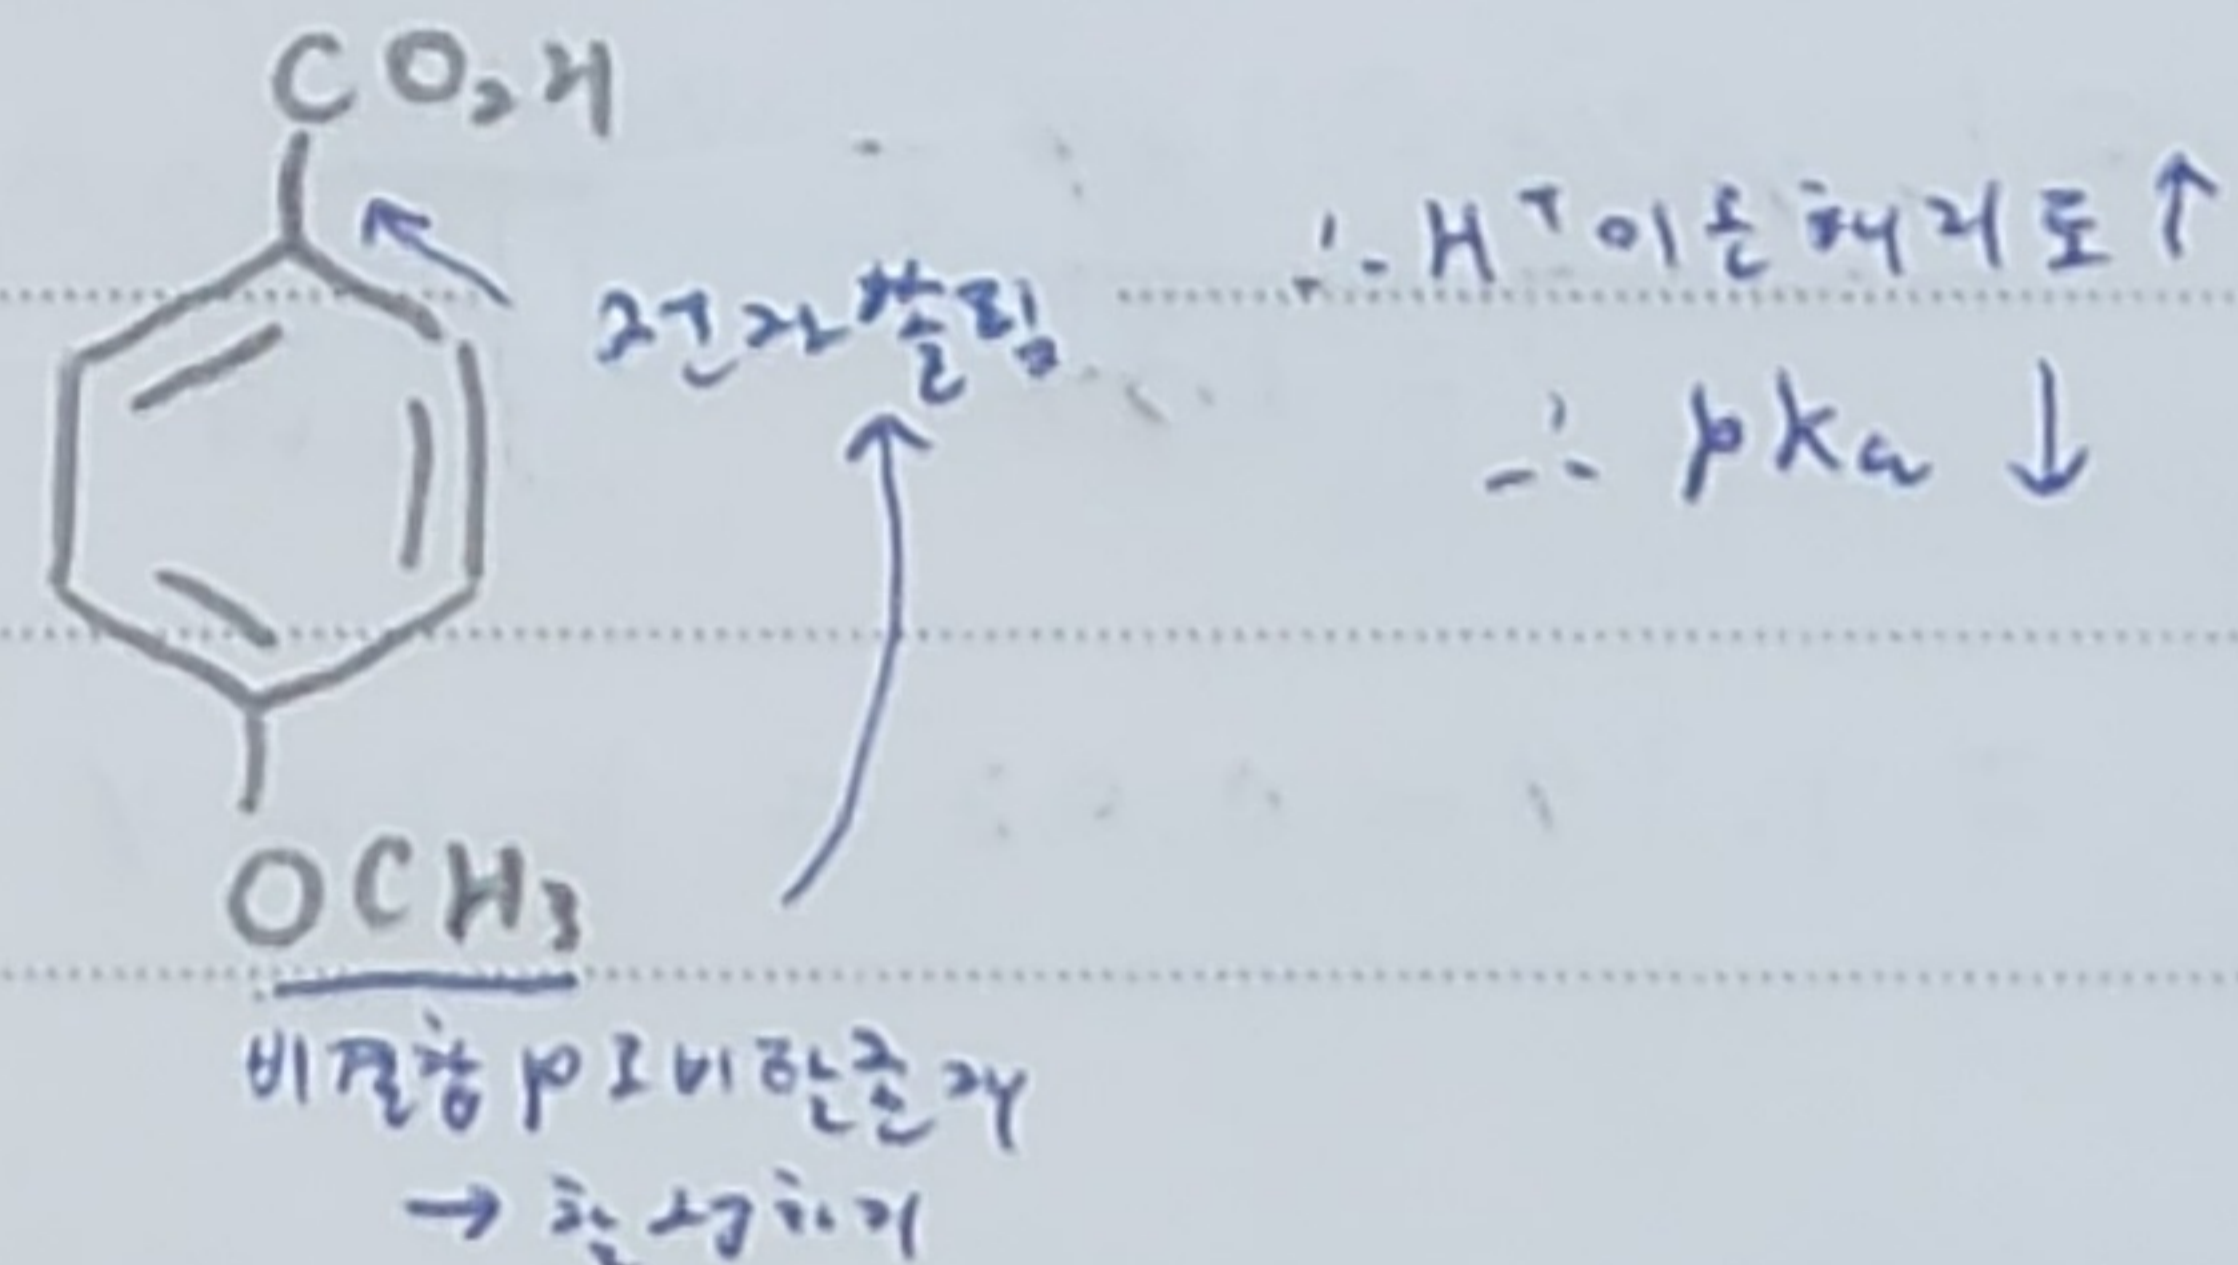 CO₂H
전자쏠림
∴ H⁺이온 해리도 ↑
∴ pka ↓
OCH₃
비결합 p오비탈존재
→ 활성화기